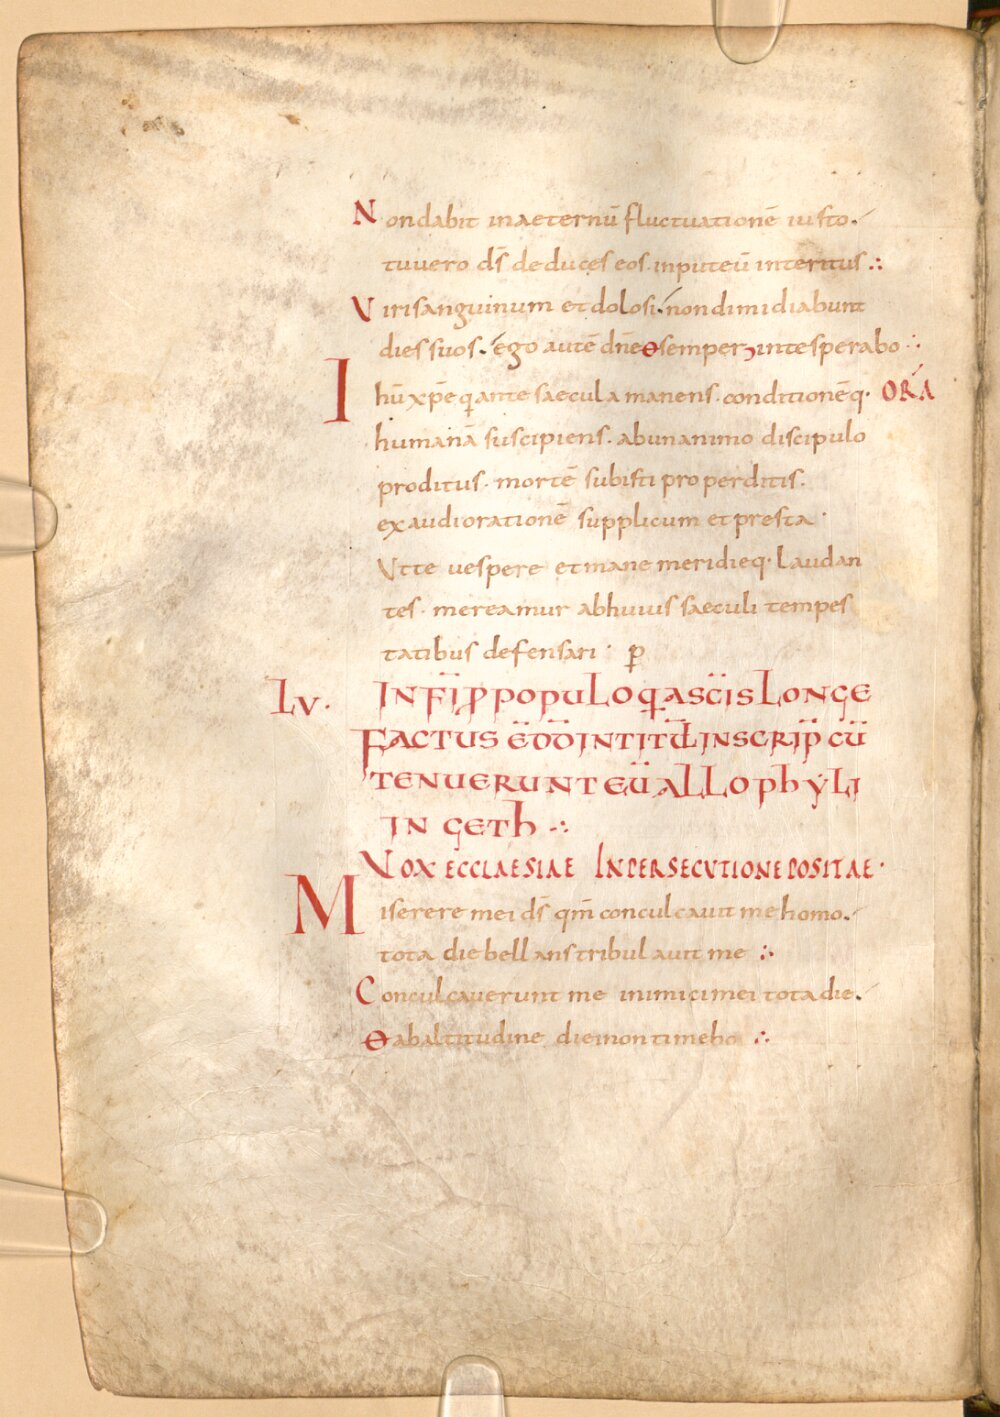 Non dabit in aeternū fluctuationē iusto.
tu uero dš deduces eos. in puteū interitus.:
Viri sanguinum et dolosi. non dimidiabunt
dies suos. ego autē dn̄e semper in te sperabo.:
Ihū xp̄e q ante saecula manens. conditionēq. ORA
humanā suscipiens. ab unanimo discipulo
proditus. mortē subisti pro perditis.
exaudi orationē supplicum et presta.
Ut te uespere et mane meridieq. laudan
tes. mereamur ab huius saeculi tempes
tatibus defensari. p̄
LV. IN FĪ P POPULO Q A SC̄IS LONGE
FACTUS Ē DD̄ IN TITUŁ INSCRIP̄ CŪ
TENUERUNT EŪ ALLOPHYLI
IN GETH.:
VOX ECCLAESIAE IN PERSECUTIONE POSITAE.
Miserere mei dš qm̄ conculcauit me homo.
tota die bellans tribulauit me.:
Conculcauerunt me inimici mei tota die.
ab altitudine diei non timebo.: